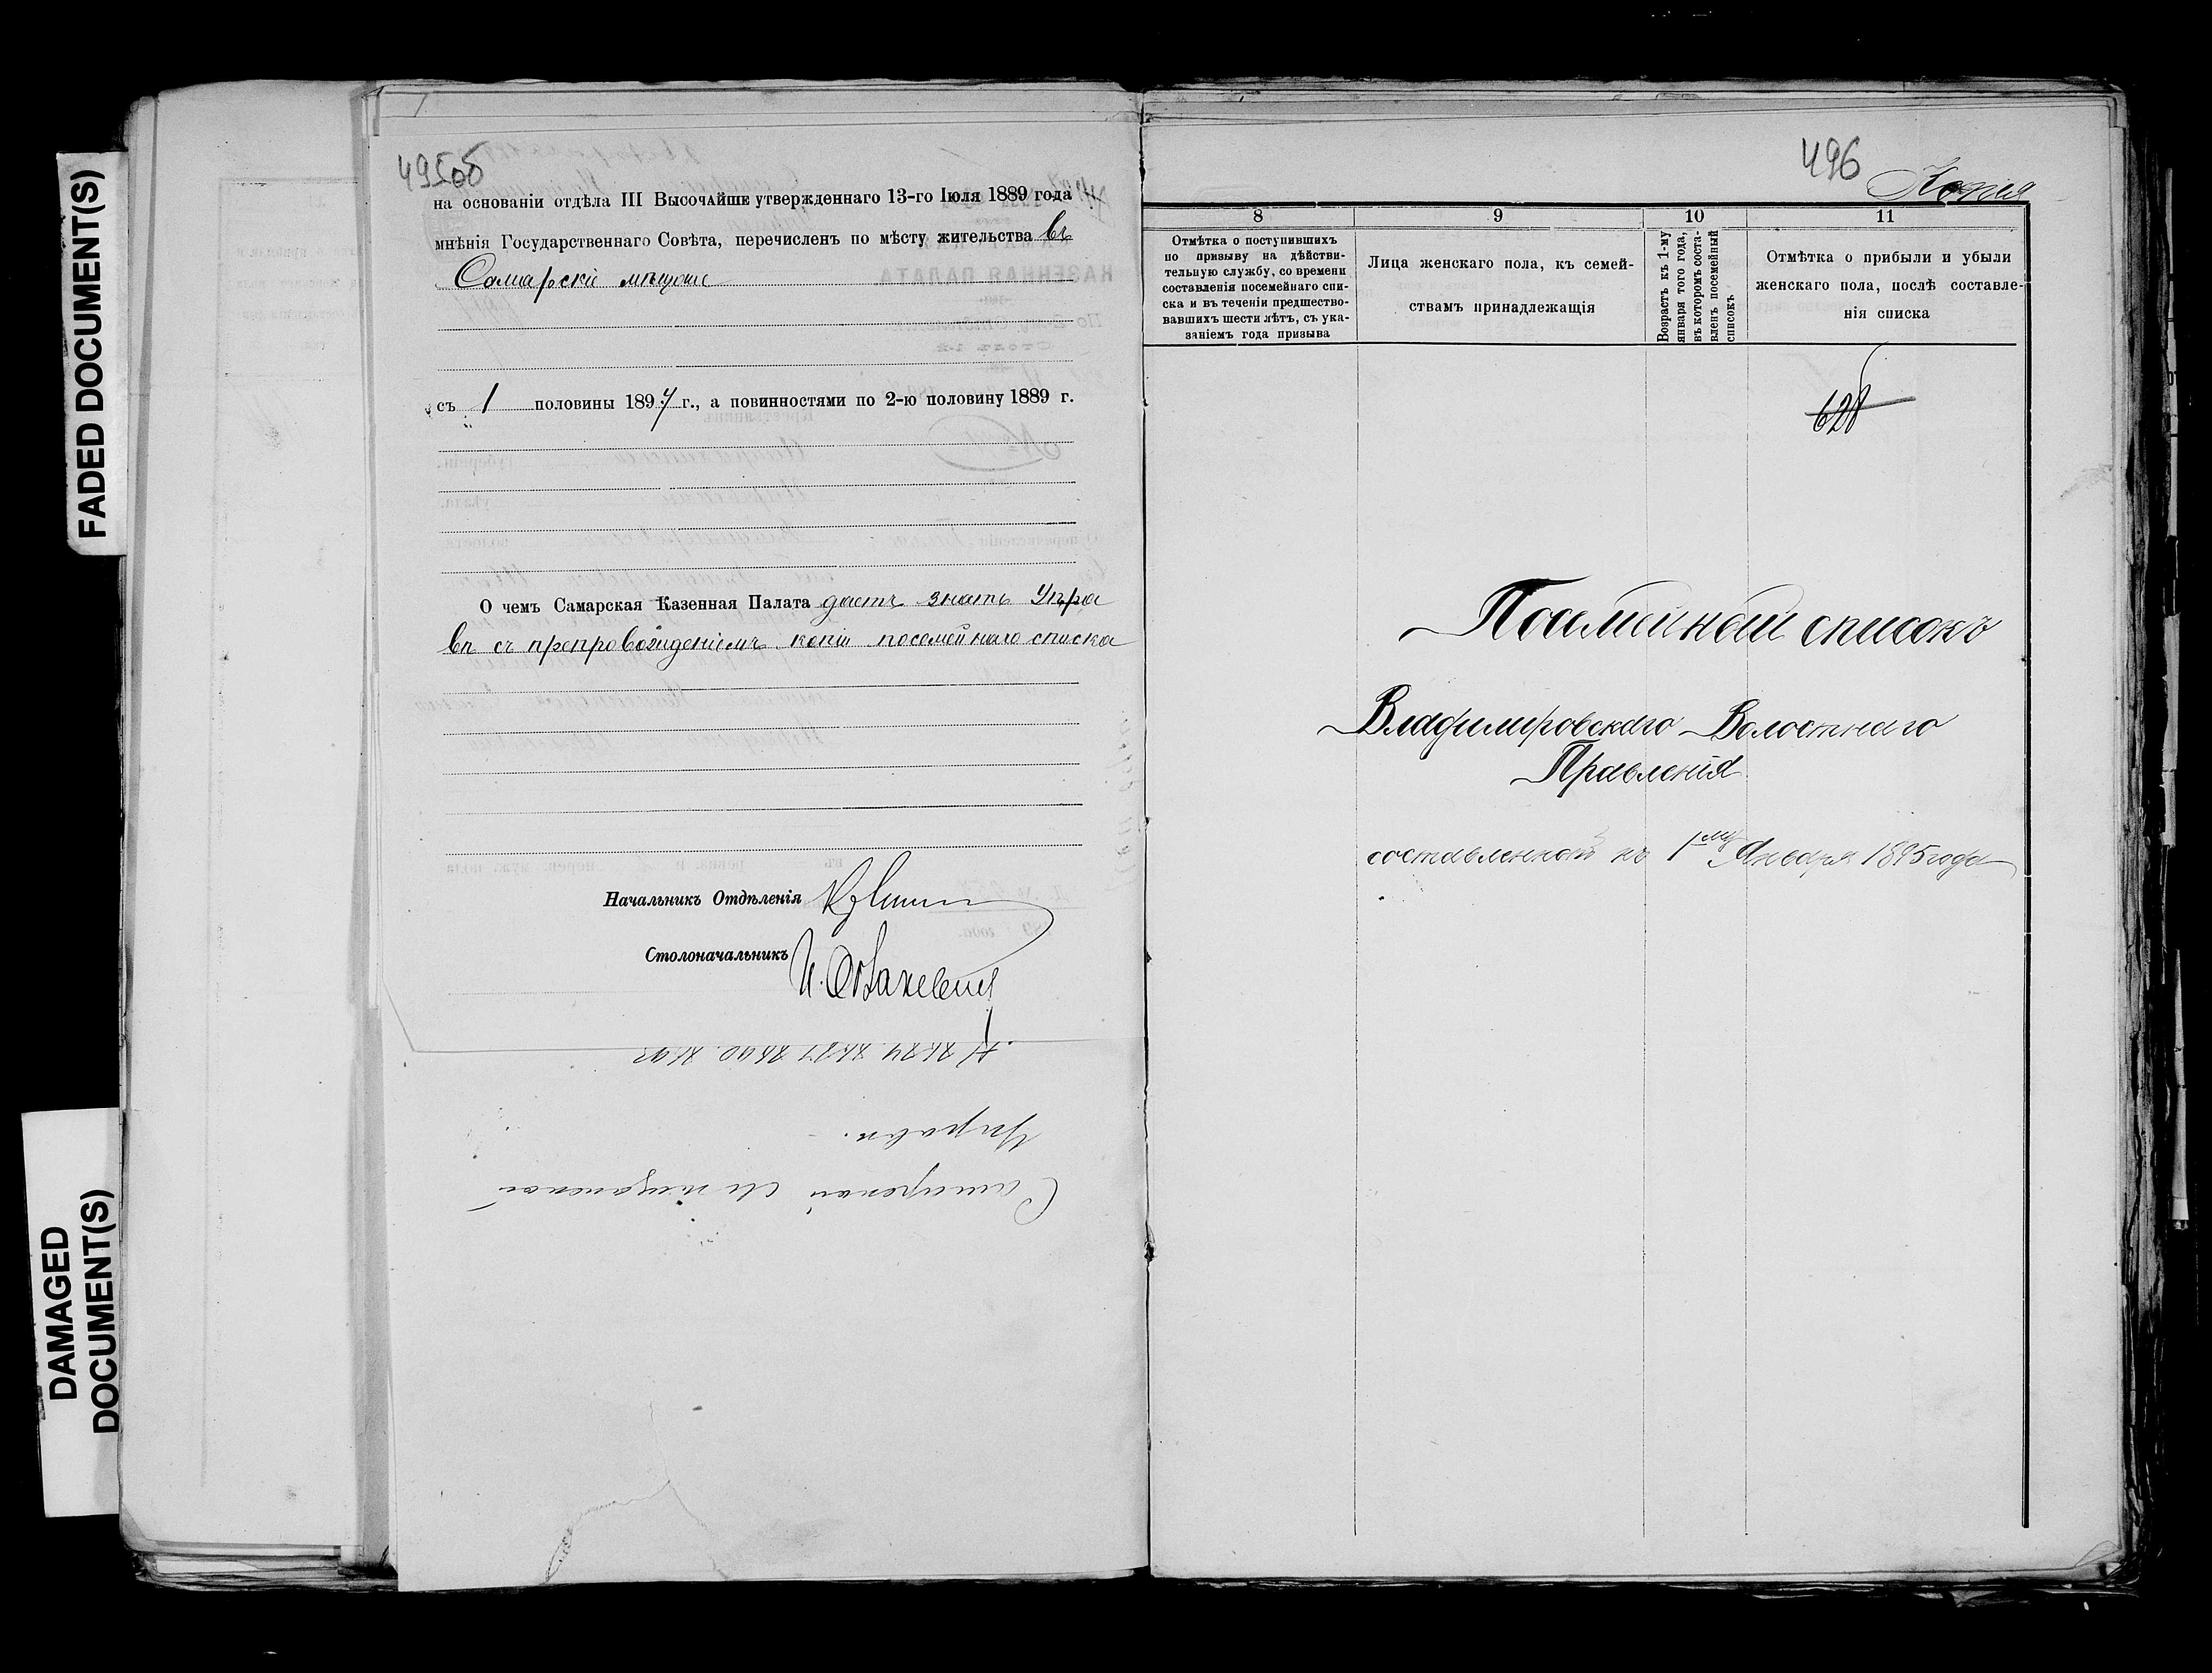 FADED DOCUMENT(S)
DAMAGED
DOCUMENT(S)
495об
на основаніи отдѣла III Высочайше утвержденнаго 13-го Іюля 1889 года
мнѣнія Государственнаго Совѣта, перечисленъ по мѣсту жительства въ
Самарскіе мѣщане
съ 1 половины 1897 г., а повинностями по 2-ю половину 1889 г.
О чемъ Самарская Казенная Палата даетъ знать Упра
вѣ съ препровожденіемъ копіи посемейнаго списка
Начальникъ Отдѣленія
Столоначальникъ
Самарской Мѣщанской
Управѣ.
496
Копія
8 9 10 11
Отмѣтка о поступившихъ
по призыву на дѣйстви-
тельную службу, со времени
составленія посемейнаго спи-
ска и въ теченіи предшество-
вавшихъ шести лѣтъ, съ ука-
заніемъ года призыва
Лица женскаго пола, къ семей-
ствамъ принадлежащія
Возрастъ къ 1-му
января того года,
въ которомъ соста-
вленъ посемейный
списокъ
Отмѣтка о прибыли и убыли
женскаго пола, послѣ составле-
нія списка
628
Посемейный списокъ
Владимировскаго Волостнаго
Правленія
составленный къ 1му Января 1895 года